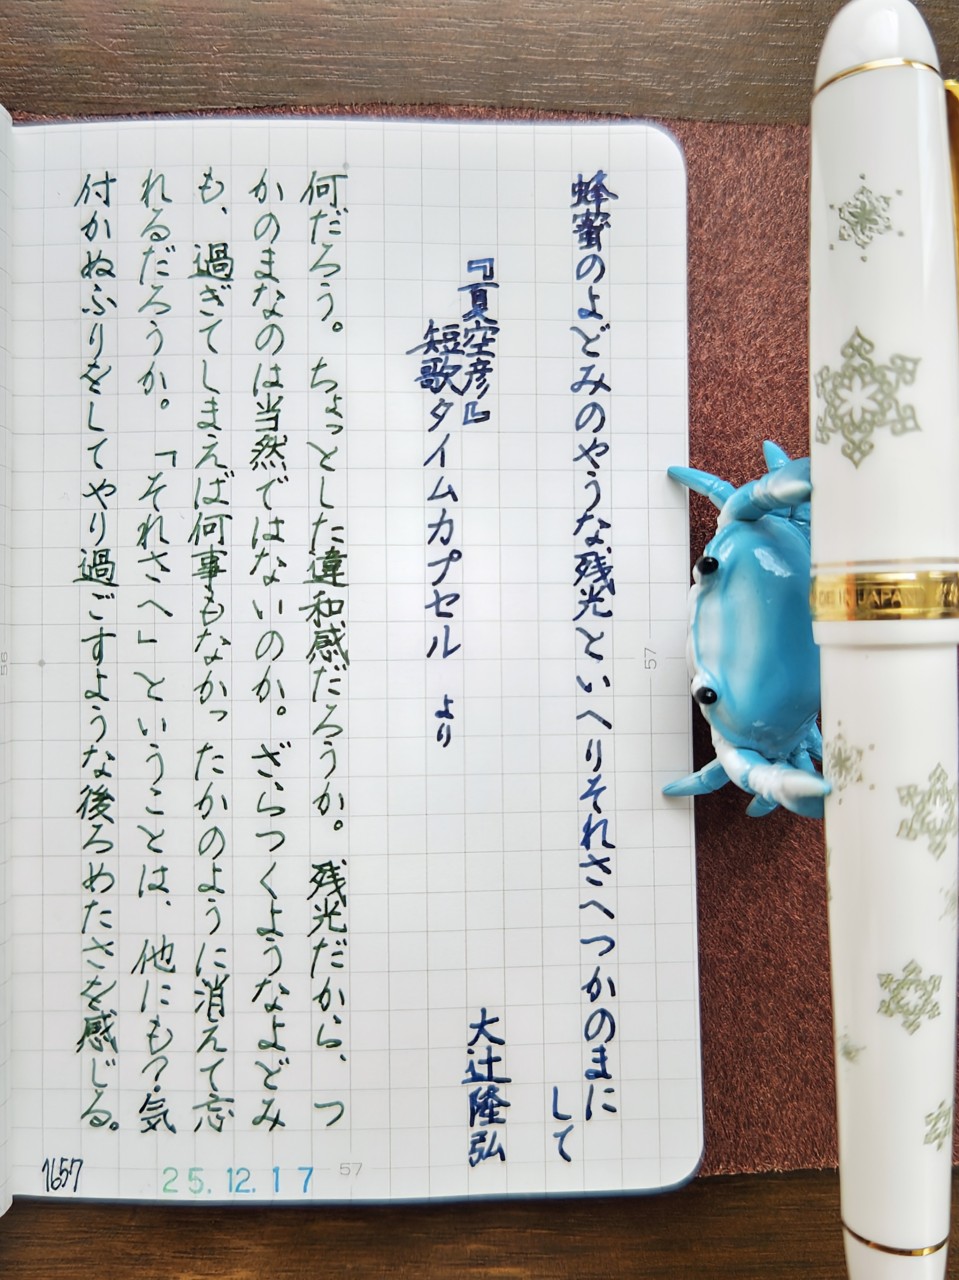 蜂蜜のよどみのやうな残光といへりそれさへつかのまに
して
『夏空彦』
短歌タイムカプセル より
大辻隆弘
何だろう。ちょっとした違和感だろうか。残光だから、つ
かのまなのは当然ではないのか。ざらつくようなよどみ
も、過ぎてしまえば何事もなかったかのように消えて忘
れるだろうか。「それさへ」ということは、他にも?気
付かぬふりをしてやり過ごすような後ろめたさを感じる。
1657
25.12.17
57
57
56
JAPAN